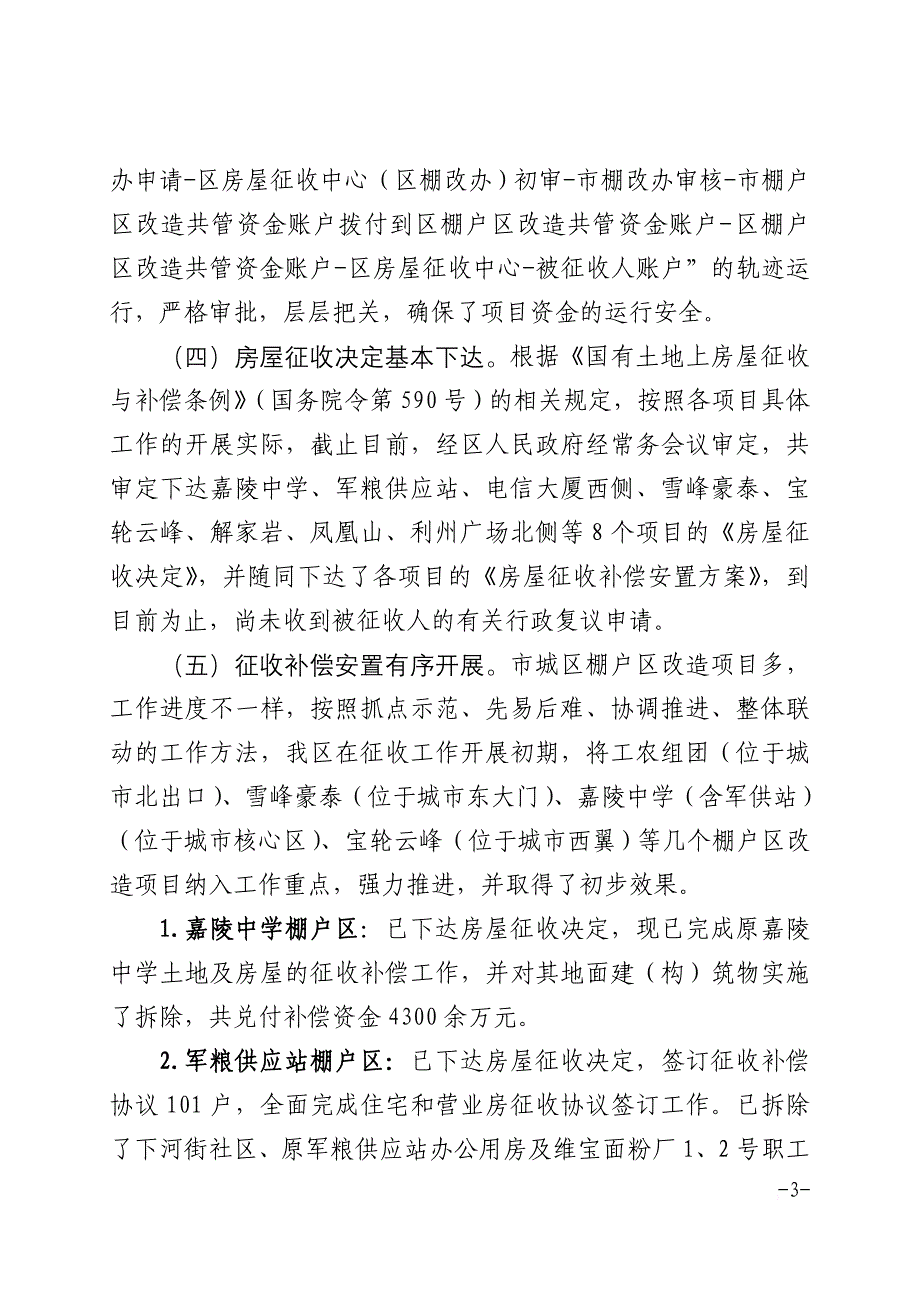 办申请-区房屋征收中心（区棚改办）初审-市棚改办审核-市棚户
区改造共管资金账户拨付到区棚户区改造共管资金账户-区棚户
区改造共管资金账户-区房屋征收中心-被征收人账户”的轨迹运
行，严格审批，层层把关，确保了项目资金的运行安全。
（四）房屋征收决定基本下达。根据《国有土地上房屋征收
与补偿条例》（国务院令第 590 号）的相关规定，按照各项目具体
工作的开展实际，截止目前，经区人民政府经常务会议审定，共
审定下达嘉陵中学、军粮供应站、电信大厦西侧、雪峰豪泰、宝
轮云峰、解家岩、凤凰山、利州广场北侧等 8 个项目的《房屋征
收决定》，并随同下达了各项目的《房屋征收补偿安置方案》，到
目前为止，尚未收到被征收人的有关行政复议申请。
（五）征收补偿安置有序开展。市城区棚户区改造项目多，
工作进度不一样，按照抓点示范、先易后难、协调推进、整体联
动的工作方法，我区在征收工作开展初期，将工农组团（位于城
市北出口）、雪峰豪泰（位于城市东大门）、嘉陵中学（含军供站）
（位于城市核心区）、宝轮云峰（位于城市西翼）等几个棚户区改
造项目纳入工作重点，强力推进，并取得了初步效果。
1.嘉陵中学棚户区：已下达房屋征收决定，现已完成原嘉陵
中学土地及房屋的征收补偿工作，并对其地面建（构）筑物实施
了拆除，共兑付补偿资金 4300 余万元。
2.军粮供应站棚户区：已下达房屋征收决定，签订征收补偿
协议 101 户，全面完成住宅和营业房征收协议签订工作。已拆除
了下河街社区、原军粮供应站办公用房及维宝面粉厂 1、2 号职工
-3-